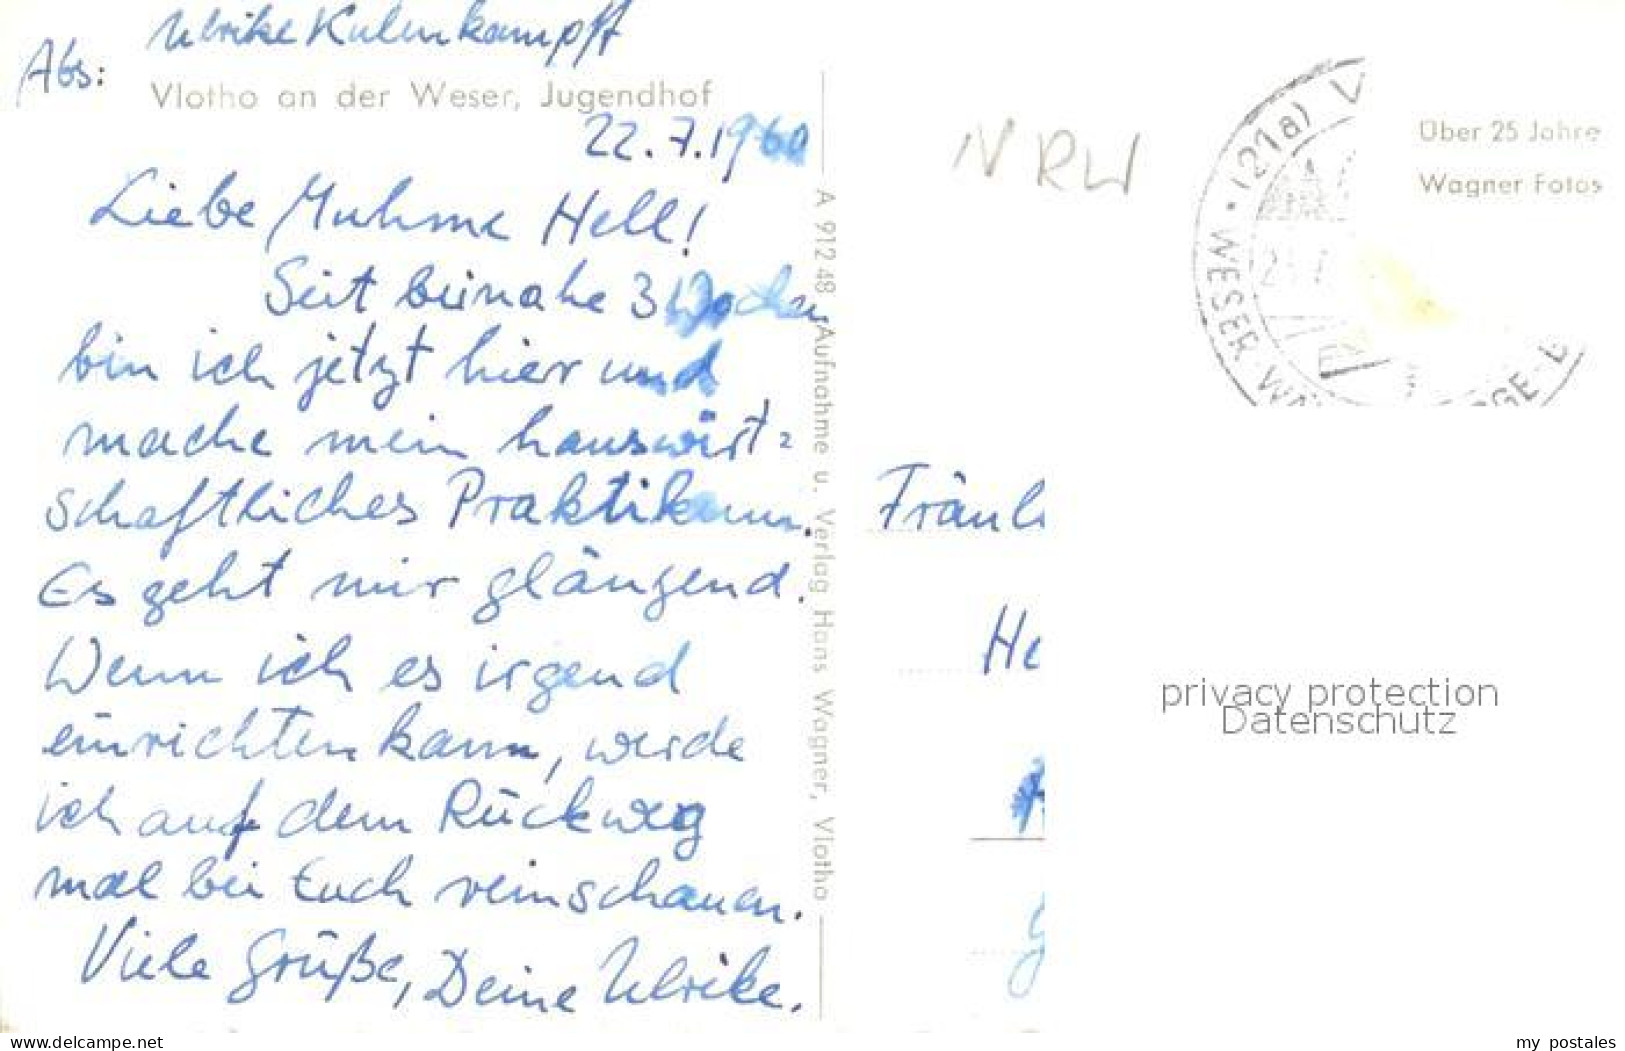 Ulrike Kulenkampff
Abs:
Vlotho an der Weser, Jugendhof
22.7.1960
Liebe Muhme Hell!
Seit beinahe 3 Wochen
bin ich jetzt hier und
mache mein hauswirt=
schaftliches Praktikum.
Es geht mir glänzend.
Wenn ich es irgend
einrichten kann, werde
ich auf dem Rückweg
mal bei Euch reinschauen.
Viele Grüße, Deine Ulrike.
A 912 48 Aufnahme u. Verlag Hans Wagner, Vlotho
NRW
(21a) V
WESER
Über 25 Jahre
Wagner Fotos
Fräul
He
privacy protection
Datenschutz
www.delcampe.net
my_postales